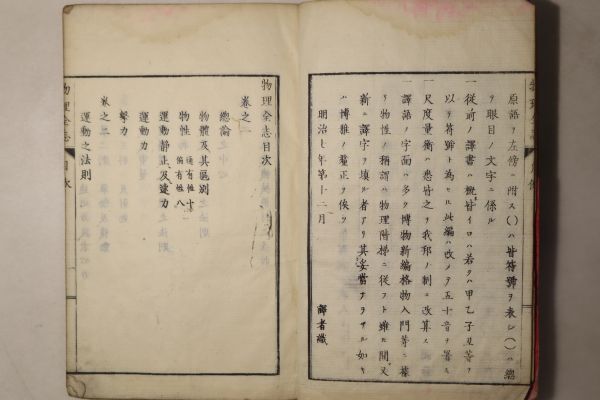 原語ヲ左傍ニ附ス()ハ皆符號ヲ表シ()ハ總
テ眼目ノ文字ニ係ル
一從前ノ譯書ハ槪皆イロハ若クハ甲乙子丑等ヲ
以テ符號ト為セ𪜈此編ハ改メテ五十音ヲ署ス
一尺度量衡ハ悉皆之ヲ我邦ノ制ニ改算ス
一譯語ノ字面ハ多ク博物新編格物入門等ニ據
リ物性ノ稱謂ハ物理階梯ニ從フト雖𪜈間又
新ニ譯字ヲ塡ル者アリ其妥當ナラサル如キ
ハ博雅ノ釐正ヲ俟ツ
明治七年第十二月
譯者識
物理全志目次
卷之一
總論
物體及其區別
物性 通有性十一 偏有性八
運動靜止及速力
運動力
擊力
卷之二
運動之法則
物理全志 目次